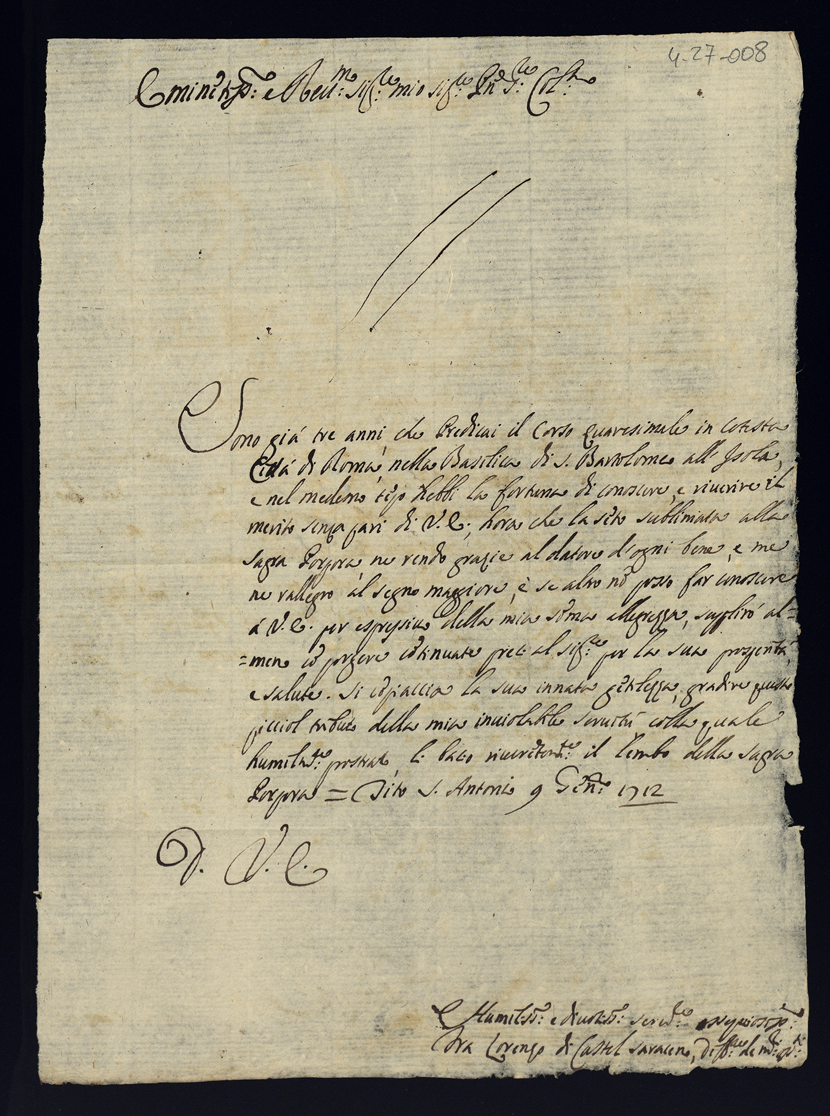 4-27-008
Emin:mo e Reu:mo Sig:re mio Sig:re Pn: Col:mo
Sono già tre anni che Predicai il Corso quaresimale in cotesta
Città di Roma, nella Basilica di S. Bartolomeo all' Isola,
e nel medemo tipo hebbi la fortuna di conoscere, e riuerire il
merito senza pari di V. E., hora che la sito sublimata alla
Sagra Porpora ne rendo grazie al datore d'ogni bene, e me
ne rallegro al segno maggiore, e se altro nō posso far conoscere
á V. E. per espressiua della mia sōma allegrezza, suppliró al=
=meno cō porgere cōtinuate preci al Sig:re per la sua prosperità,
e salute. Si cōpiaccia la sua innata gētilezza gradire questo
picciol tributo della mia inuiolabile seruitú colla quale
humilm:te prostrato li bacio riuerētem:te il lembo della Sagra
Porpora = Tito S. Antonio 9 Genn: 1712
D. V. E.
Humiliss: e diuotiss: seru: ossequiosiss:
Fra Lorenzo di Castel Saraceno,